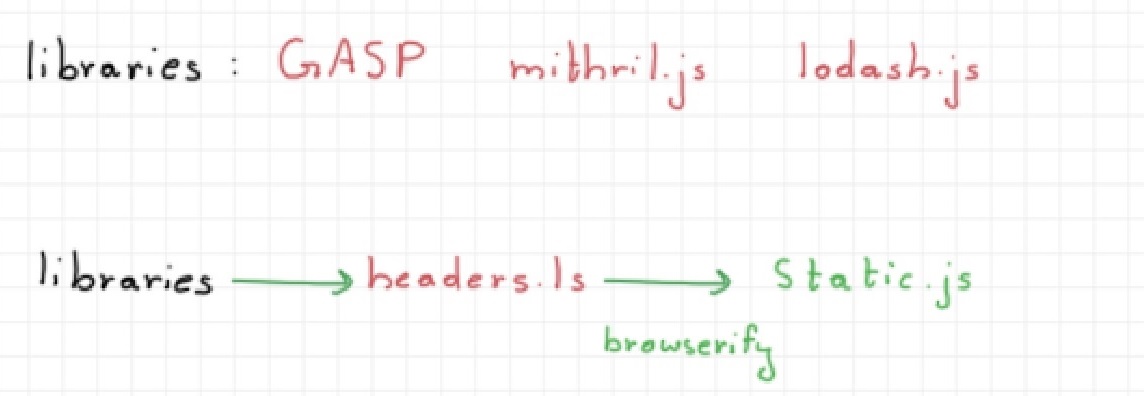 libraries : GASP mithril.js lodash.js
libraries → headers.ls → Static.js
browserify